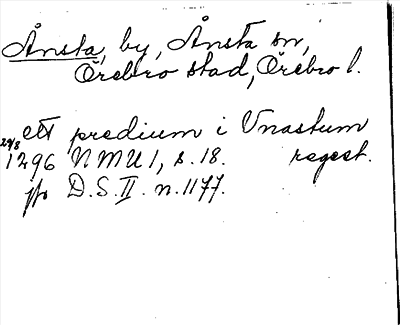 Ånsta, by, Ånsta sn,
Örebro stad, Örebro l.
ett predium i Vnastum
29/8 1296 NMU 1, s. 18. regest.
D.S. II. n. 1177.